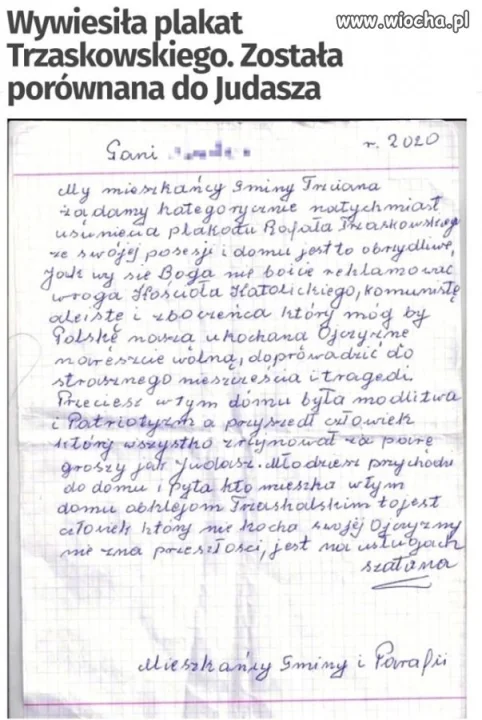 Wywiesiła plakat
www.wiocha.pl
Trzaskowskiego. Została
porównana do Judasza
Pani
r. 2020
My mieszkańcy Gminy Trzciana
żądamy kategorycznie natychmiast
usunięcia plakatu Rafała Trzaskowskiego
ze swójej posesji i domu jest to obrzydliwe,
Jak wy się Boga nie boicie reklamować
wroga Kościoła Katolickiego, komunistę
aleistę i zboczeńca który móg by
Polskę nasza ukochana Ojczyzne
nareszcie wolną, doprówadzić do
strasznego nieszczęścia i tragedi.
Przeciesz w tym domu była modlitwa
i Patriotyzm a przyszedł człowiek
który wszystko zrujnował za parę
groszy jak Judasz. Młodziesz przychodzi
do domu i pyta kto mieszka w tym
domu obklejom Trzaskalskim to jest
człowiek który nie kocha swojéj Ojczyzny
nie zna przeszłosci, jest na usługach
szatana
Mieszkańcy Gminy i Parafii